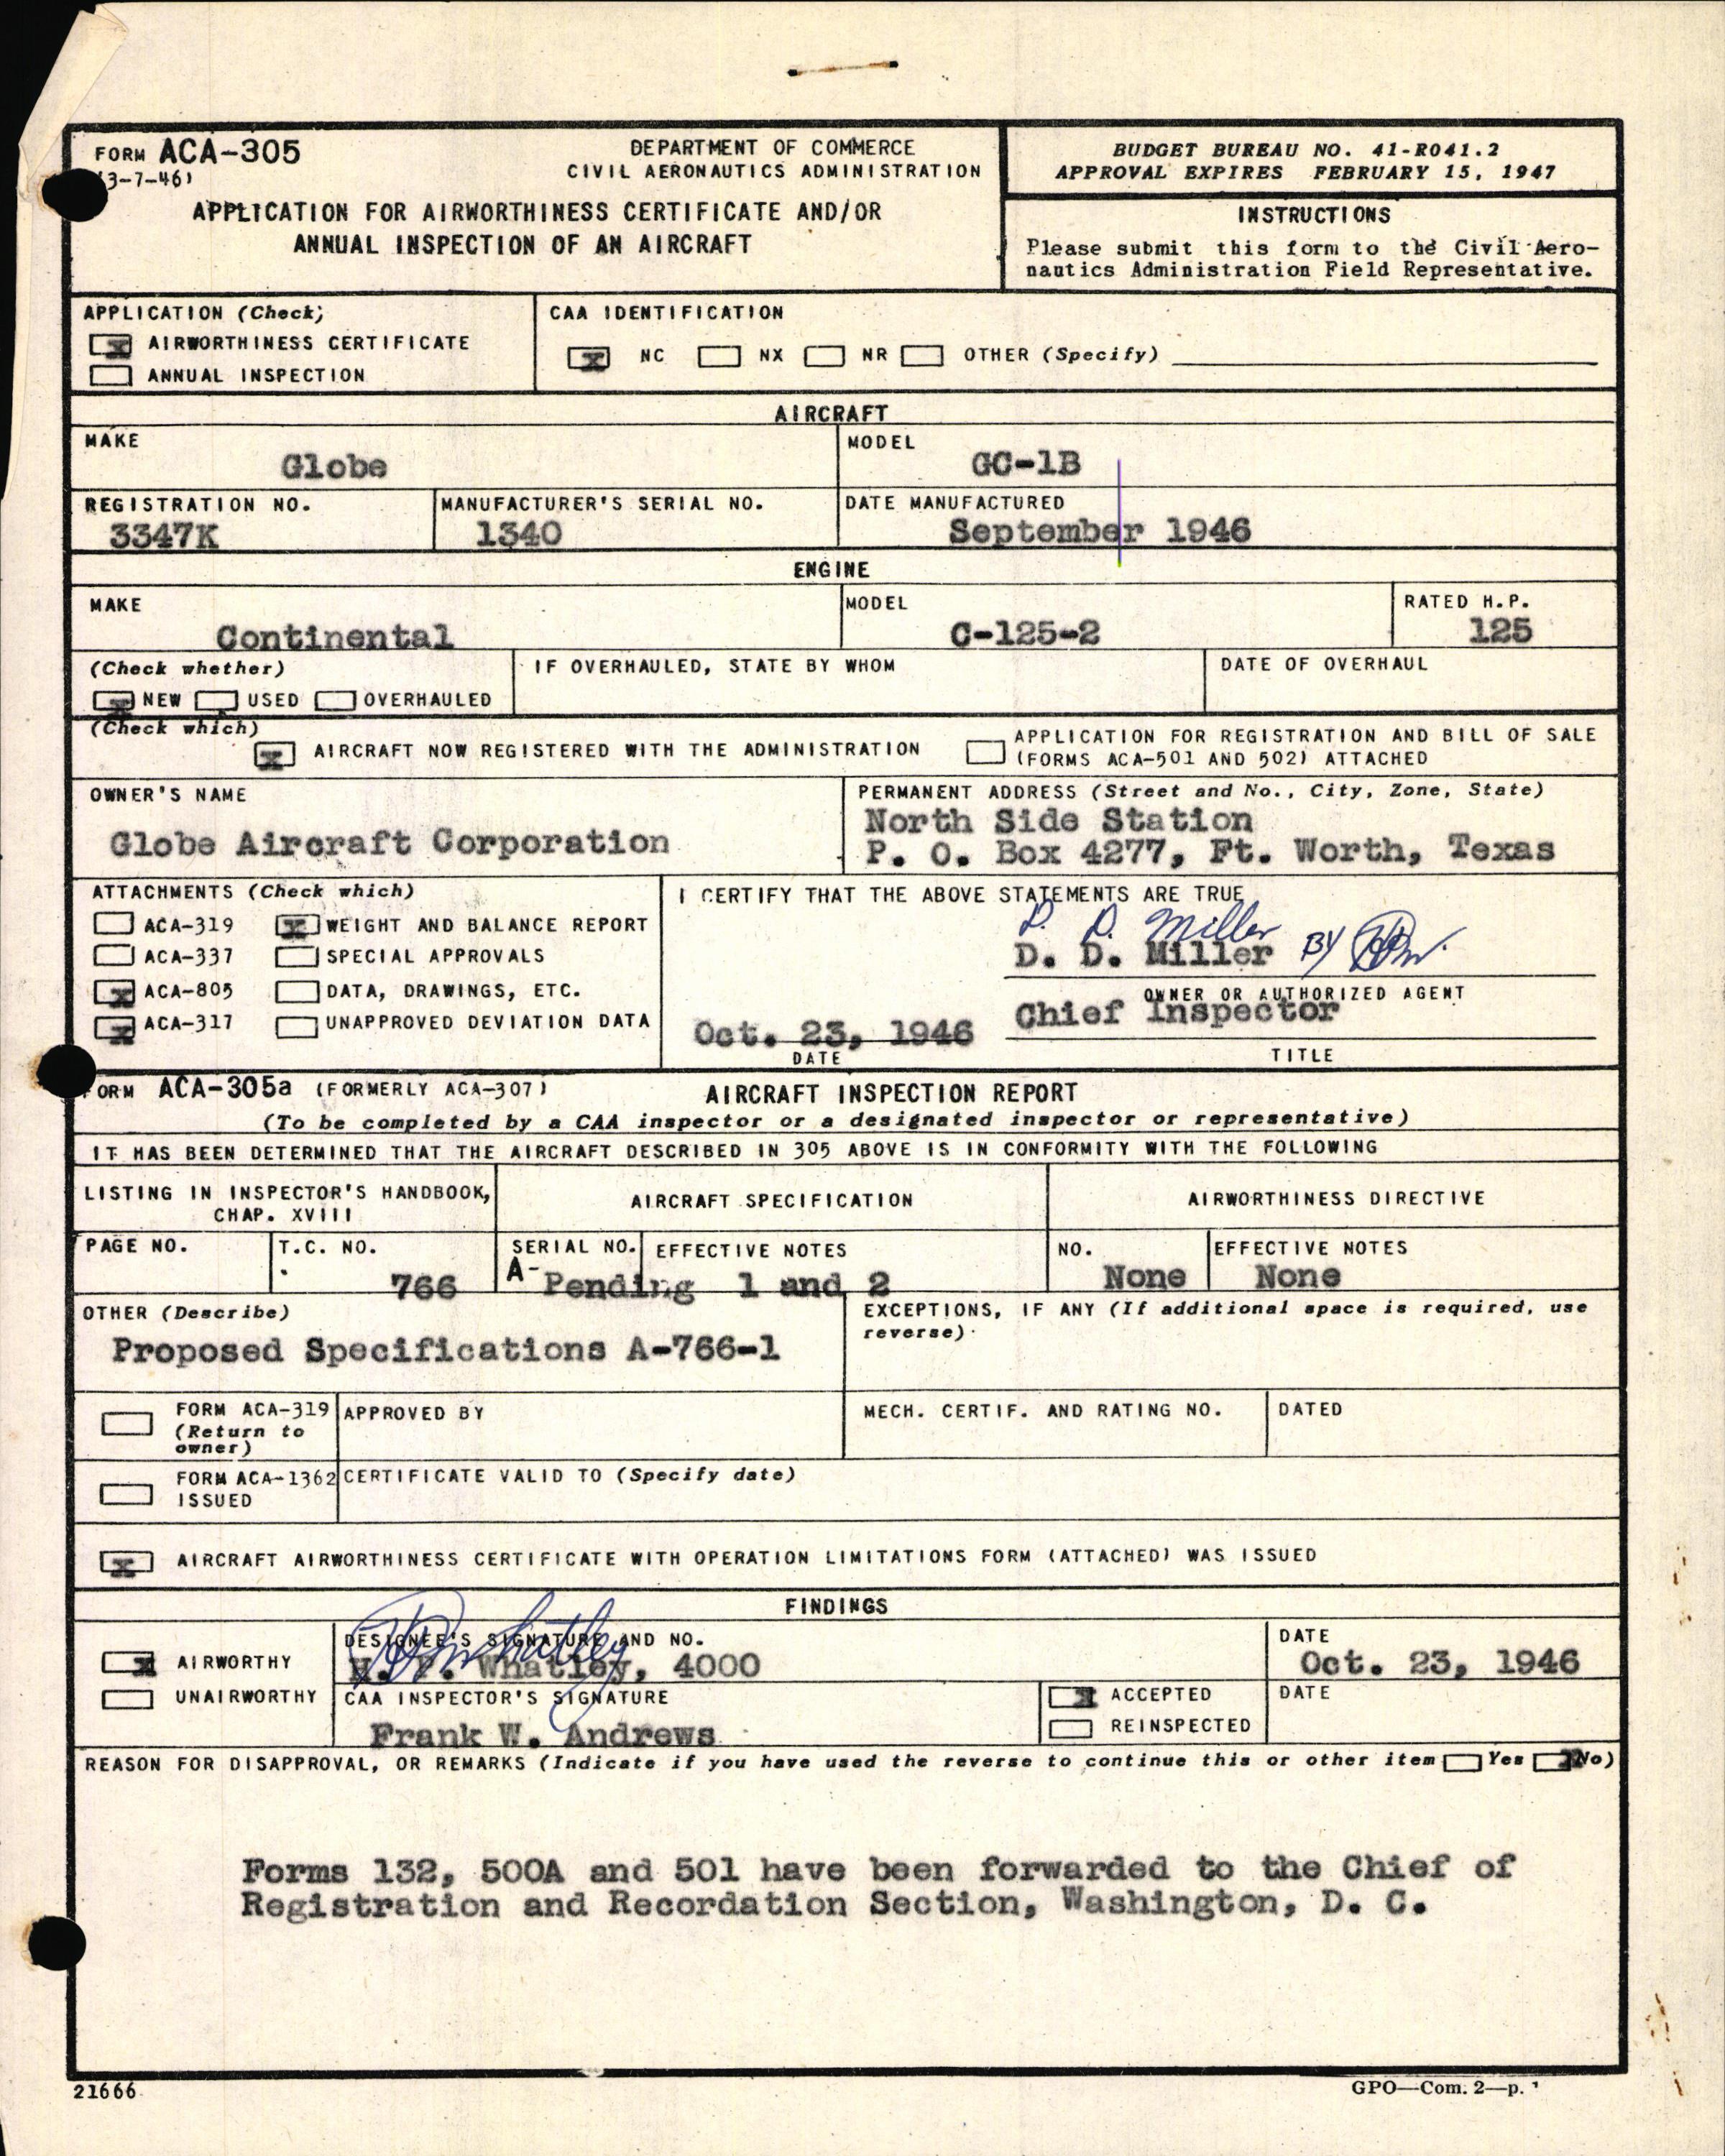 FORM ACA-305
(3-7-46)
DEPARTMENT OF COMMERCE
CIVIL AERONAUTICS ADMINISTRATION
APPLICATION FOR AIRWORTHINESS CERTIFICATE AND/OR
ANNUAL INSPECTION OF AN AIRCRAFT
BUDGET BUREAU NO. 41-R041.2
APPROVAL EXPIRES FEBRUARY 15, 1947
INSTRUCTIONS
Please submit this form to the Civil Aero-
nautics Administration Field Representative.
APPLICATION (Check)
x AIRWORTHINESS CERTIFICATE
ANNUAL INSPECTION
CAA IDENTIFICATION
x NC NX NR OTHER (Specify)
AIRCRAFT
MAKE
Globe
MODEL
GC-1B
REGISTRATION NO.
3347K
MANUFACTURER'S SERIAL NO.
1340
DATE MANUFACTURED
September 1946
ENGINE
MAKE
Continental
MODEL
C-125-2
RATED H.P.
125
(Check whether)
x NEW USED OVERHAULED
IF OVERHAULED, STATE BY WHOM
DATE OF OVERHAUL
(Check which)
x AIRCRAFT NOW REGISTERED WITH THE ADMINISTRATION
APPLICATION FOR REGISTRATION AND BILL OF SALE
(FORMS ACA-501 AND 502) ATTACHED
OWNER'S NAME
Globe Aircraft Corporation
PERMANENT ADDRESS (Street and No., City, Zone, State)
North Side Station
P. O. Box 4277, Ft. Worth, Texas
ATTACHMENTS (Check which)
ACA-319 x WEIGHT AND BALANCE REPORT
ACA-337 SPECIAL APPROVALS
x ACA-805 DATA, DRAWINGS, ETC.
x ACA-317 UNAPPROVED DEVIATION DATA
I CERTIFY THAT THE ABOVE STATEMENTS ARE TRUE
D. D. Miller
D. D. Miller BY
OWNER OR AUTHORIZED AGENT
Chief Inspector
TITLE
Oct. 23, 1946
DATE
FORM ACA-305a (FORMERLY ACA-307)
AIRCRAFT INSPECTION REPORT
(To be completed by a CAA inspector or a designated inspector or representative)
IT HAS BEEN DETERMINED THAT THE AIRCRAFT DESCRIBED IN 305 ABOVE IS IN CONFORMITY WITH THE FOLLOWING
LISTING IN INSPECTOR'S HANDBOOK,
CHAP. XVIII
AIRCRAFT SPECIFICATION
AIRWORTHINESS DIRECTIVE
PAGE NO.
T.C. NO.
766
SERIAL NO.
A- Pending
EFFECTIVE NOTES
1 and 2
NO.
None
EFFECTIVE NOTES
None
OTHER (Describe)
Proposed Specifications A-766-1
EXCEPTIONS, IF ANY (If additional space is required, use
reverse)
FORM ACA-319
(Return to
owner)
APPROVED BY
MECH. CERTIF. AND RATING NO.
DATED
FORM ACA-1362
ISSUED
CERTIFICATE VALID TO (Specify date)
x AIRCRAFT AIRWORTHINESS CERTIFICATE WITH OPERATION LIMITATIONS FORM (ATTACHED) WAS ISSUED
FINDINGS
x AIRWORTHY
UNAIRWORTHY
DESIGNEE'S SIGNATURE AND NO.
Whatley, 4000
DATE
Oct. 23, 1946
CAA INSPECTOR'S SIGNATURE
Frank W. Andrews
x ACCEPTED
REINSPECTED
DATE
REASON FOR DISAPPROVAL, OR REMARKS (Indicate if you have used the reverse to continue this or other item Yes x No)
Forms 132, 500A and 501 have been forwarded to the Chief of
Registration and Recordation Section, Washington, D. C.
21666
GPO—Com. 2—p.